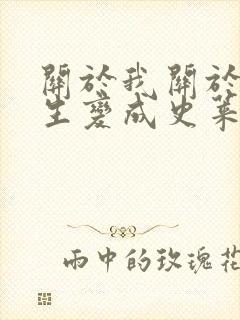 關於我關於
生變成史萊
雨中的玫瑰花